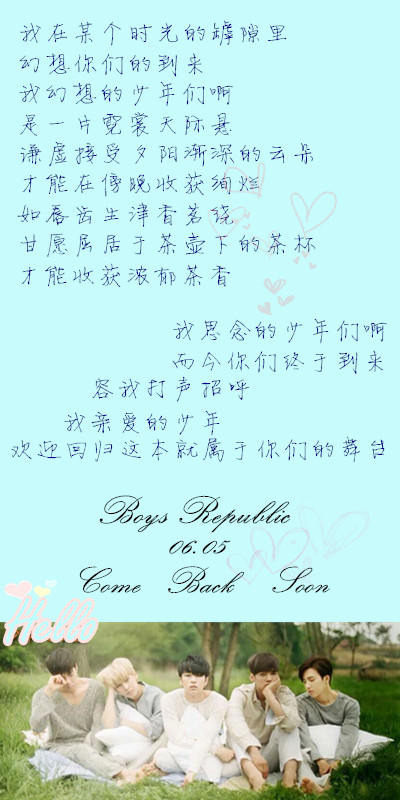 我在某个时光的罅隙里
幻想你们的到来
我幻想的少年们啊
是一片霓裳天际悬
谦虚接受夕阳渐深的云朵
才能在傍晚收获绚烂
如唇齿生津香茗绕
甘愿屈居于茶壶下的茶杯
才能收获浓郁茶香
我思念的少年们啊
而今你们终于到来
容我打声招呼
我亲爱的少年
欢迎回归这本就属于你们的舞台
Boys Republic
06.05
Come Back Soon
Hello